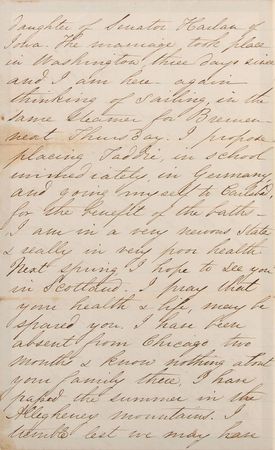 daughter of Senator Harlan of
Iowa. The marriage, took place
in Washington three days since
and I am here again
thinking of Sailing, in the
same steamer for Bremen
next Thursday. I propose
placing Taddie, in school
immediately, in Germany
and going myself to Carlsbad,
for the benefit of the baths—
I am in a very nervous state
& really in very poor health.
Next spring I hope to see you
in Scotland. I pray that
your health & life, may be
spared you. I have been
absent from Chicago, two
months & know nothing about
your family there, I have
passed the summer in the
Allegheney mountains. I
tremble lest we may have